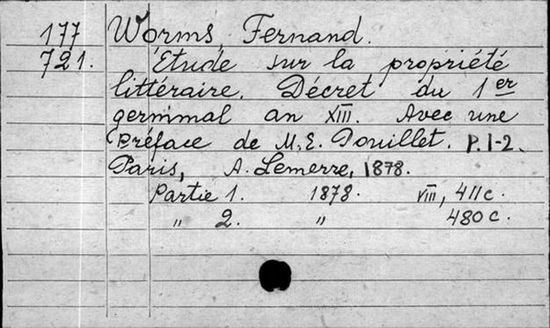 177 Worms, Fernand.
721. Etude sur la propriété
littéraire. Décret du 1er
germinal an XIII. Avec une
Préface de M. E. Pouillet. P. 1-2.
Paris, A. Lemerre, 1878.
Partie 1. 1878. VIII, 411 c.
" 2. " 480 c.